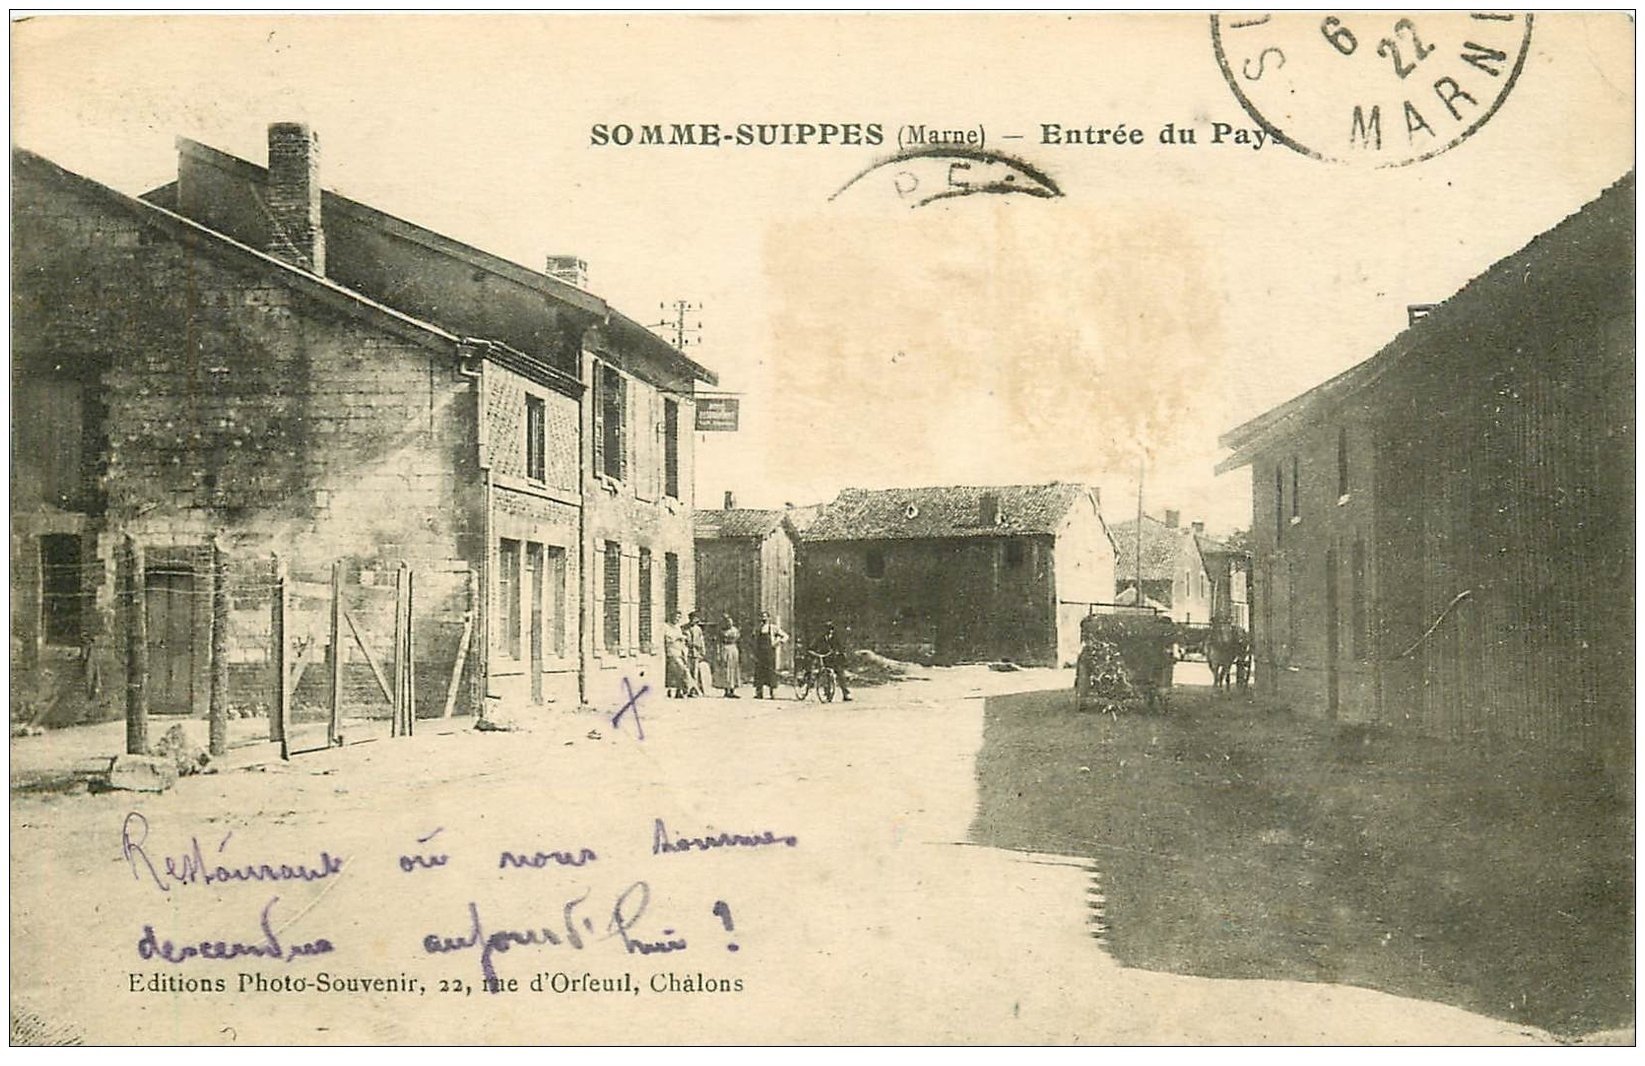 6
22
MARN
SOMME-SUIPPES (Marne) — Entrée du Pays
Restaurant où nous sommes
descendus aujourd'hui !
Editions Photo-Souvenir, 22, rue d'Orfeuil, Châlons